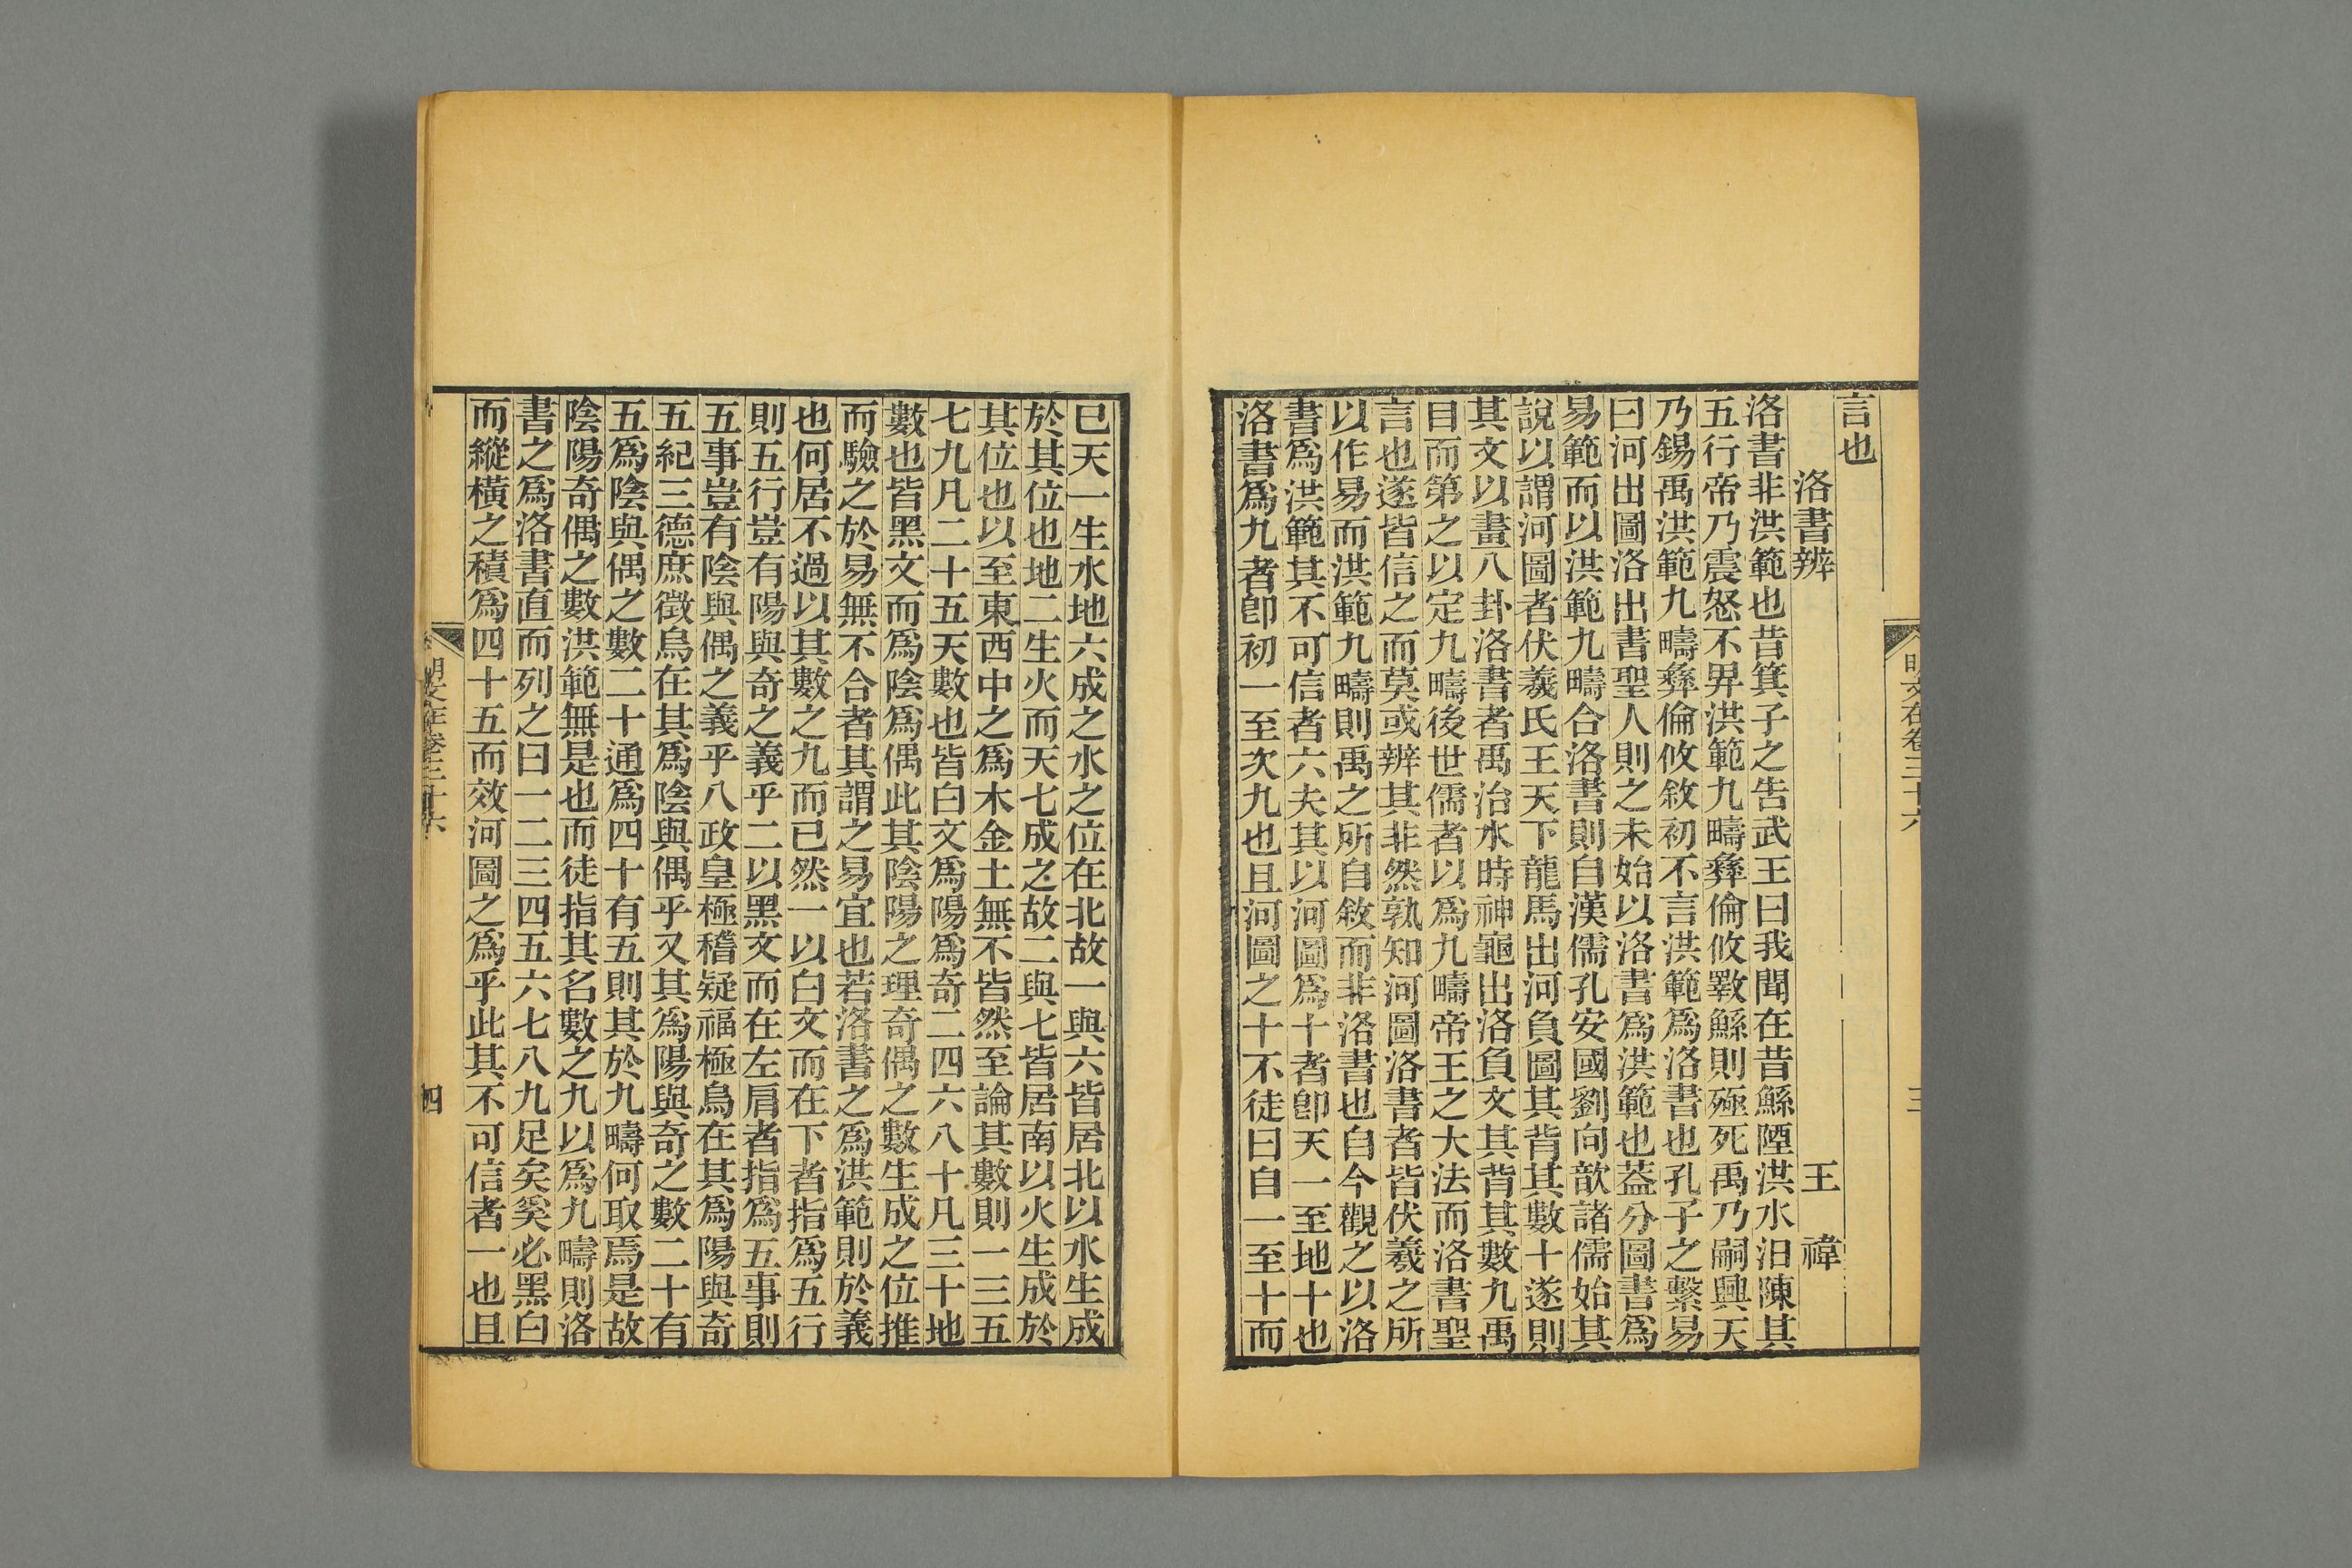 明文在卷三十六
三
言也
洛書辨
王禕
洛書非洪範也昔箕子之告武王曰我聞在昔鯀陻洪水汨陳其
五行帝乃震怒不畀洪範九疇彝倫攸斁鯀則殛死禹乃嗣興天
乃錫禹洪範九疇彝倫攸敘初不言洪範爲洛書也孔子之繫易
曰河出圖洛出書聖人則之未始以洛書爲洪範也葢分圖書爲
易範而以洪範九疇合洛書則自漢儒孔安國劉向歆諸儒始其
說以謂河圖者伏羲氏王天下龍馬出河負圖其背其數十遂則
其文以畫八卦洛書者禹治水時神龜出洛負文其背其數九禹
因而第之以定九疇後世儒者以爲九疇帝王之大法而洛書聖
言也遂皆信之而莫或辨其非然孰知河圖洛書者皆伏羲之所
以作易而洪範九疇則禹之所自敘而非洛書也自今觀之以洛
書爲洪範其不可信者六夫其以河圖爲十者卽天一至地十也
洛書爲九者卽初一至次九也且河圖之十不徒曰自一至十而
已天一生水地六成之水之位在北故一與六皆居北以水生成
於其位也地二生火而天七成之故二與七皆居南以火生成於
其位也以至東西中之爲木金土無不皆然至論其數則一三五
七九凡二十五天數也皆白文爲陽爲奇二四六八十凡三十地
數也皆黑文而爲陰爲偶此其陰陽之理奇偶之數生成之位推
而驗之於易無不合者其謂之易宜也若洛書之爲洪範則於義
也何居不過以其數之九而已然一以白文而在下者指爲五行
則五行豈有陽與奇之義乎二以黑文而在左肩者指爲五事則
五事豈有陰與偶之義乎八政皇極稽疑福極烏在其爲陽與奇
五紀三德庶徵烏在其爲陰與偶乎又其爲陽與奇之數二十有
五爲陰與偶之數二十通爲四十有五則其於九疇何取焉是故
陰陽奇偶之數洪範無是也而徒指其名數之九以爲九疇則洛
書之爲洛書直而列之曰一二三四五六七八九足矣奚必黑白
而縱橫之積爲四十五而效河圖之爲乎此其不可信者一也且
明文在卷三十六
四